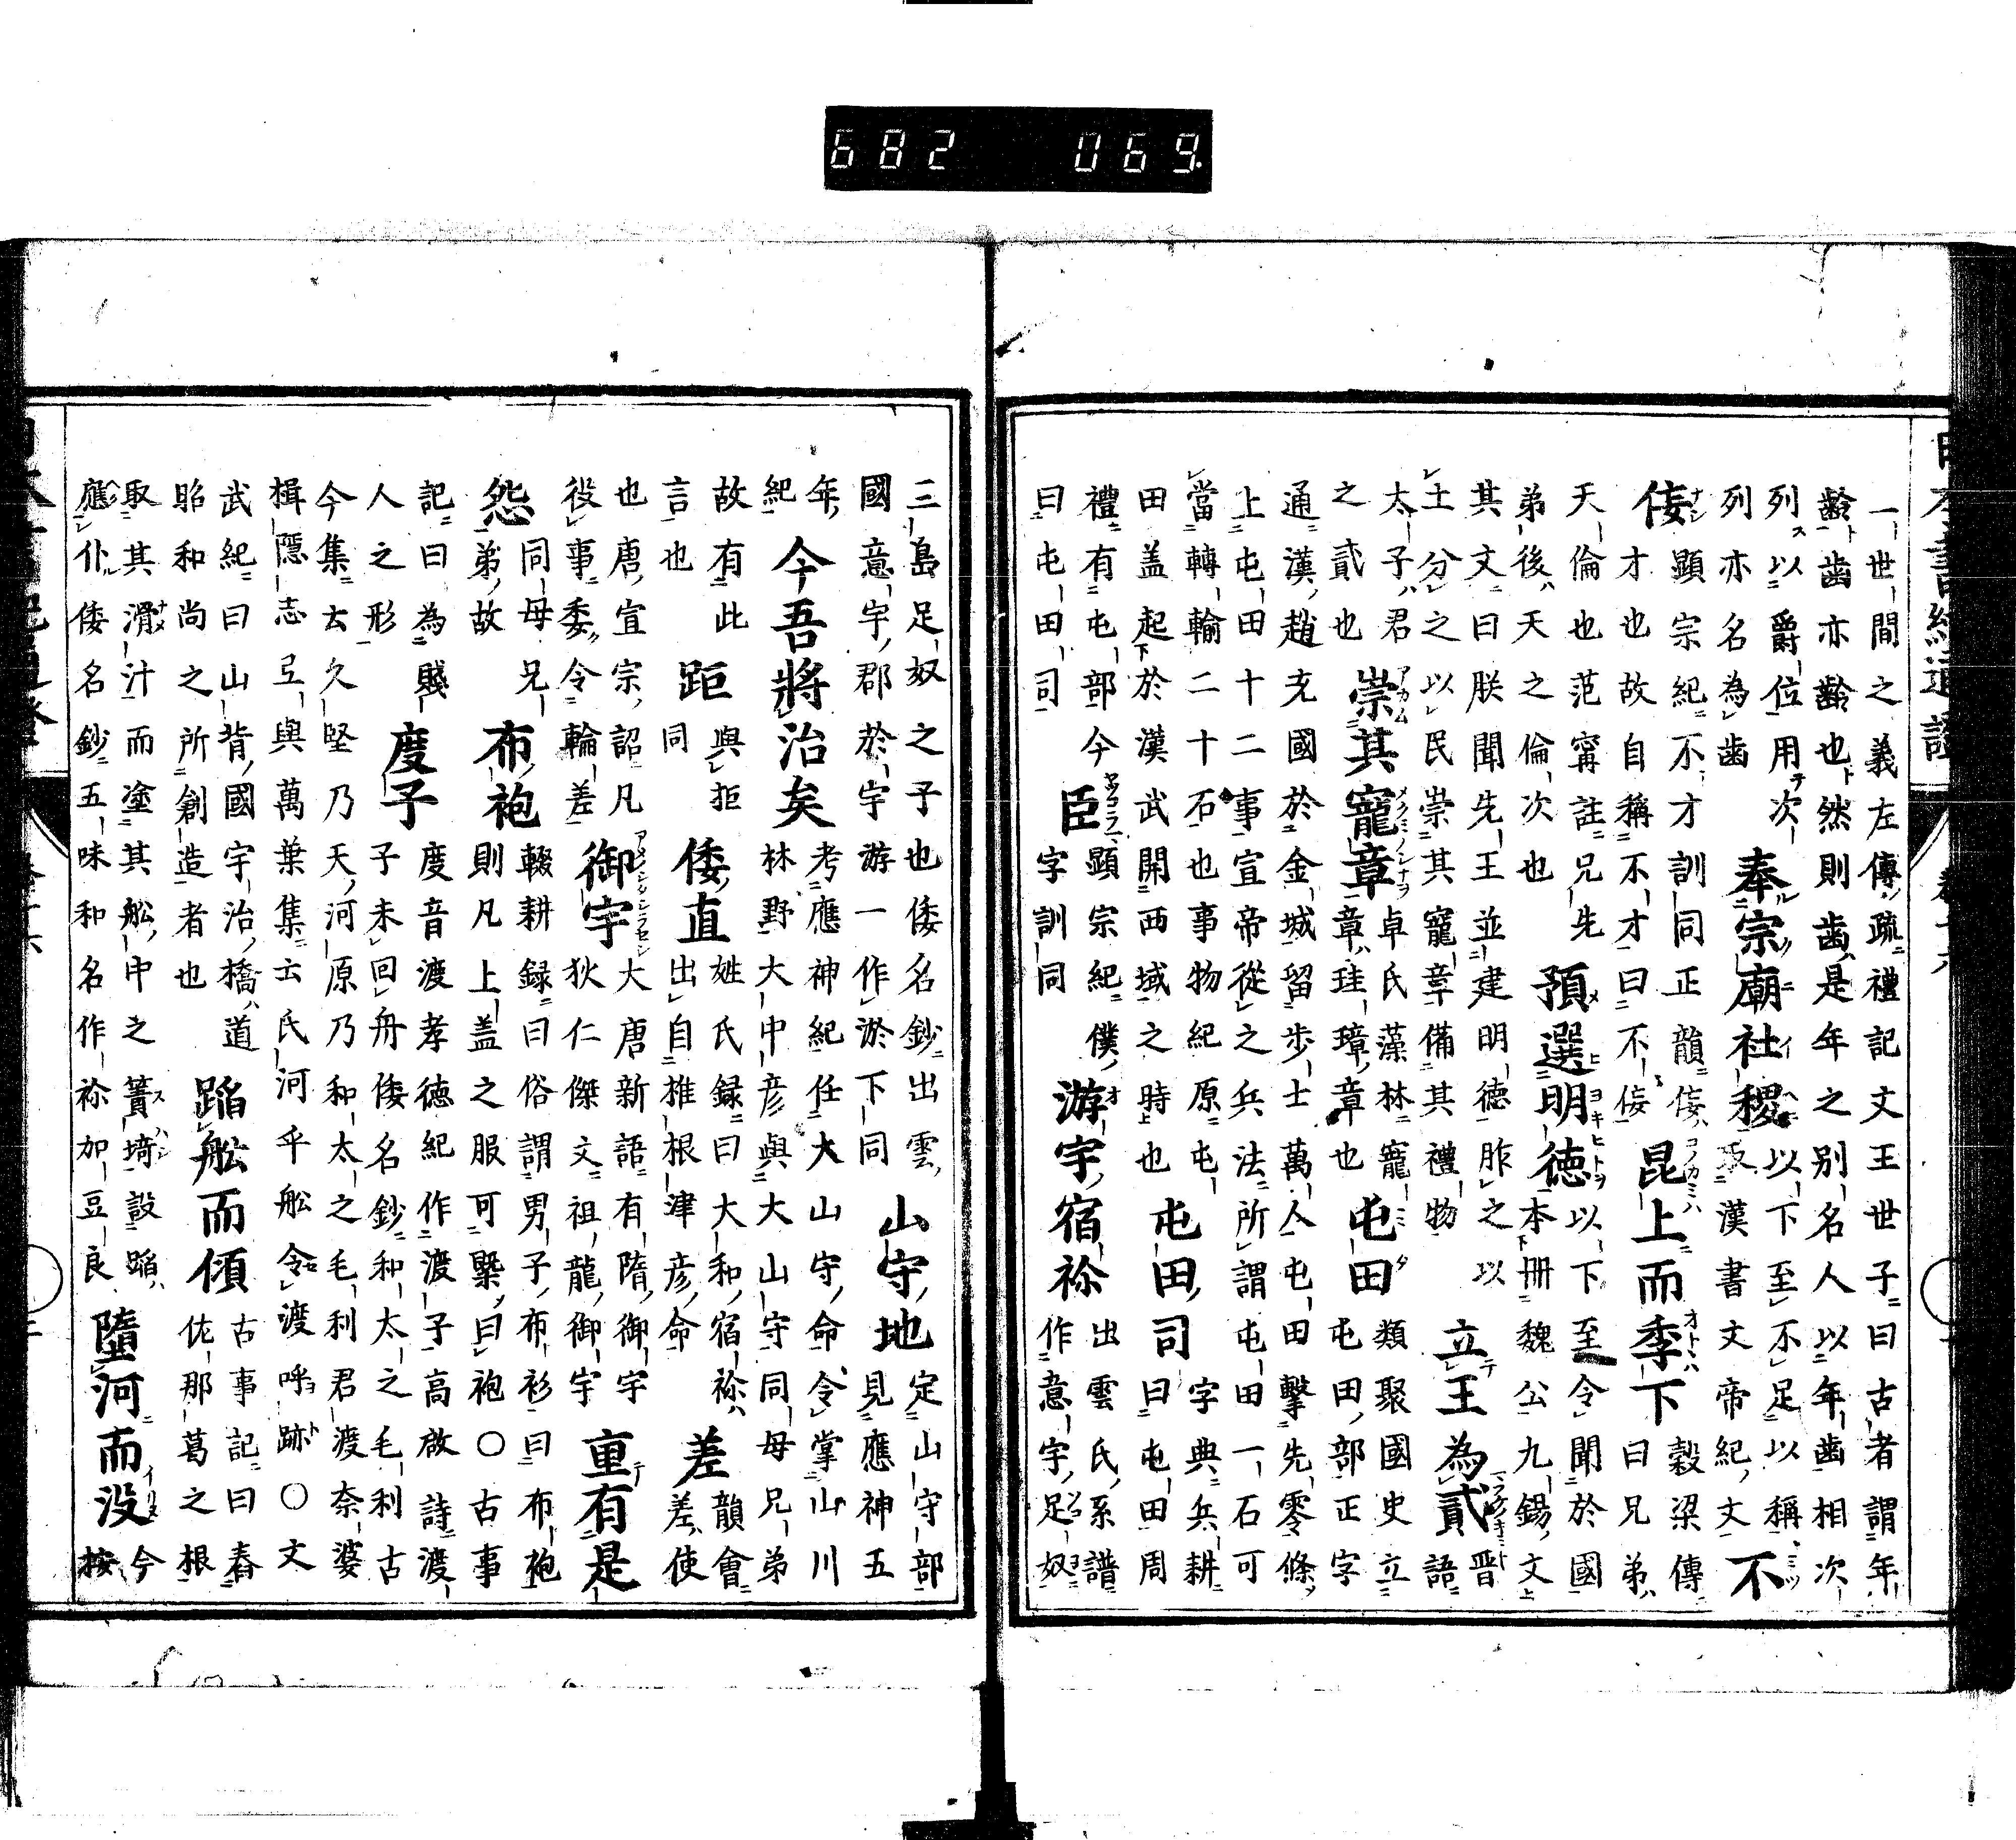 682 069
一世間之義左傳疏禮記文王世子曰古者謂年
齡齒亦齡也然則齒是年之別名人以年齒相次
列以爵位用次奉宗廟社稷以下至不足以稱
列亦名為齒漢書文帝紀文不
佞顯宗紀不才訓同正韻佞穀梁傳
才也故自稱不才曰不佞昆上而季下曰兄弟
天倫也范甯註兄先以下至令聞於國
弟後天之倫次也預選明德本冊魏公九錫文
其文曰朕聞先王並建明德胙之以立王為貳晉語
土分之以民崇其寵章備其禮物
太子君卓氏藻林寵類聚國史立
之貳也崇其寵章章珪璋章也屯田屯田部正字
通漢趙充國於金城留步士萬人屯田擊先零條
上屯田十二事宣帝從之兵法所謂屯田一石可
當轉輸二十石也事物紀原屯字典兵耕
田盖起於漢武開西域之時也屯田司曰屯田周
禮有屯部今臣顯宗紀僕游宇宿祢出雲氏系譜
曰屯田司字訓同作意宇足奴
三島足奴之子也倭名鈔出雲山守地定山守部
國意宇郡於宇游一作淤下同見應神五
年今吾將治矣考應神紀任大山守命令掌山川
紀林野大中彦與大山守同母兄弟
故有此距與拒倭直姓氏録曰大和宿祢差韻會
言也同出自椎根津彦命差使
也唐宣宗詔凡御宇大唐新語有隋御宇重有是
役事委令輪差狄仁傑文祖龍御宇
怨同母兄布袍輟耕録曰俗謂男子布衫曰布袍
弟故則凡上盖之服可槩曰袍〇古事
記曰為賤度子度音渡孝德紀作渡子高啟詩渡
人之形子未回舟倭名鈔和太之毛利古
今集云久堅乃天河原乃和太之毛利君渡奈婆
楫隱志弖與萬葉集云氏河乎船令渡呼跡〇文
武紀曰山背國宇治橋道蹈船而傾古事記曰舂
昭和尚之所創造者也佐那葛之根
取其滑汁而塗其船中之簀埼設蹈隨河而没今
應仆倭名鈔五味和名作祢加豆良按